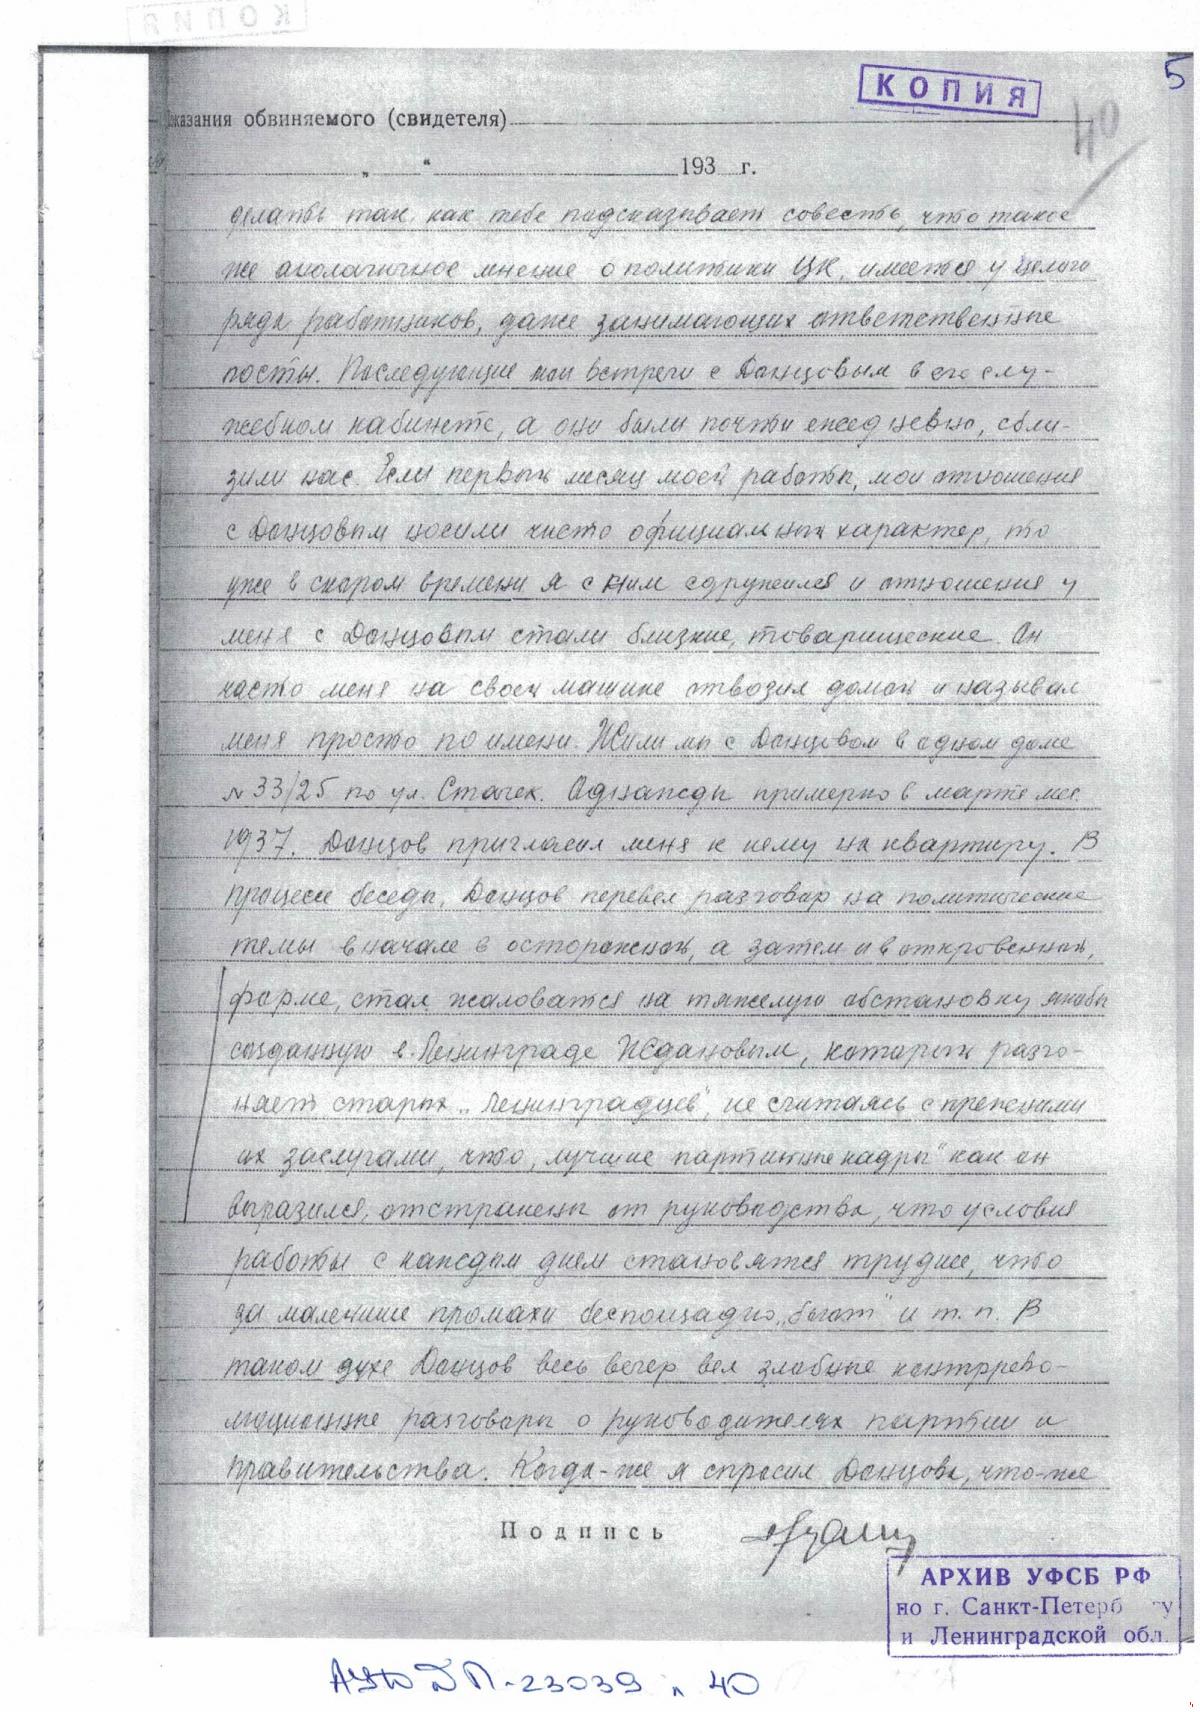 КОПИЯ
КОПИЯ
5
40
Показания обвиняемого (свидетеля)
„ “ 193 г.
делать так как тебе подсказывает совесть, что такое
же анологичное мнение о политики ЦК, имеется у целого
ряда работников, даже занимающих ответственные
посты. Последующие мои встречи с Донцовым в его слу-
жебном кабинете, а они были почти ежедневно, сбли-
зили нас. Если первый месяц моей работы, мои отношения
с Донцовым носили чисто официальный характер, то
уже в скором времени я с ним сдружился и отношения у
меня с Донцовым стали близкие, товарищеские. Он
часто меня на своей машине отвозил домой и называл
меня просто по имени. Жили мы с Донцовом в одном доме
№ 33/25 по ул. Стачек. Однажды примерно в марте мес.
1937. Донцов пригласил меня к нему на квартиру. В
процессе беседы, Донцов перевел разговор на политические
темы вначале в осторожной, а затем и в откровенной,
форме, стал жаловатся на тяжелую обстановку якобы
созданную в Ленинграде Ждановым, который разго-
няет старых „Ленинградцев", не считаясь с прежними
их заслугами, что „лучшие партийные кадры" как он
выразился, отстранены от руководства, что условия
работы с каждым днем становятся труднее, что
за маленшие промахи беспощадно „бьют" и т. п. В
таком духе Донцов весь вечер вел злобные контррево-
люционные разговоры о руководителях партии и
правительства. Когда-же я спросил Донцова, что-же
Подпись
АРХИВ УФСБ РФ
по г. Санкт-Петербургу
и Ленинградской обл.
АУД П-23039 л 40